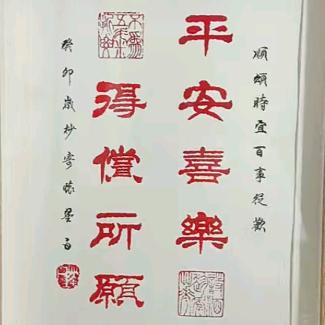 順頌時宜百事從歡
平安喜樂
得償所願
癸卯歲杪寄懷墨白